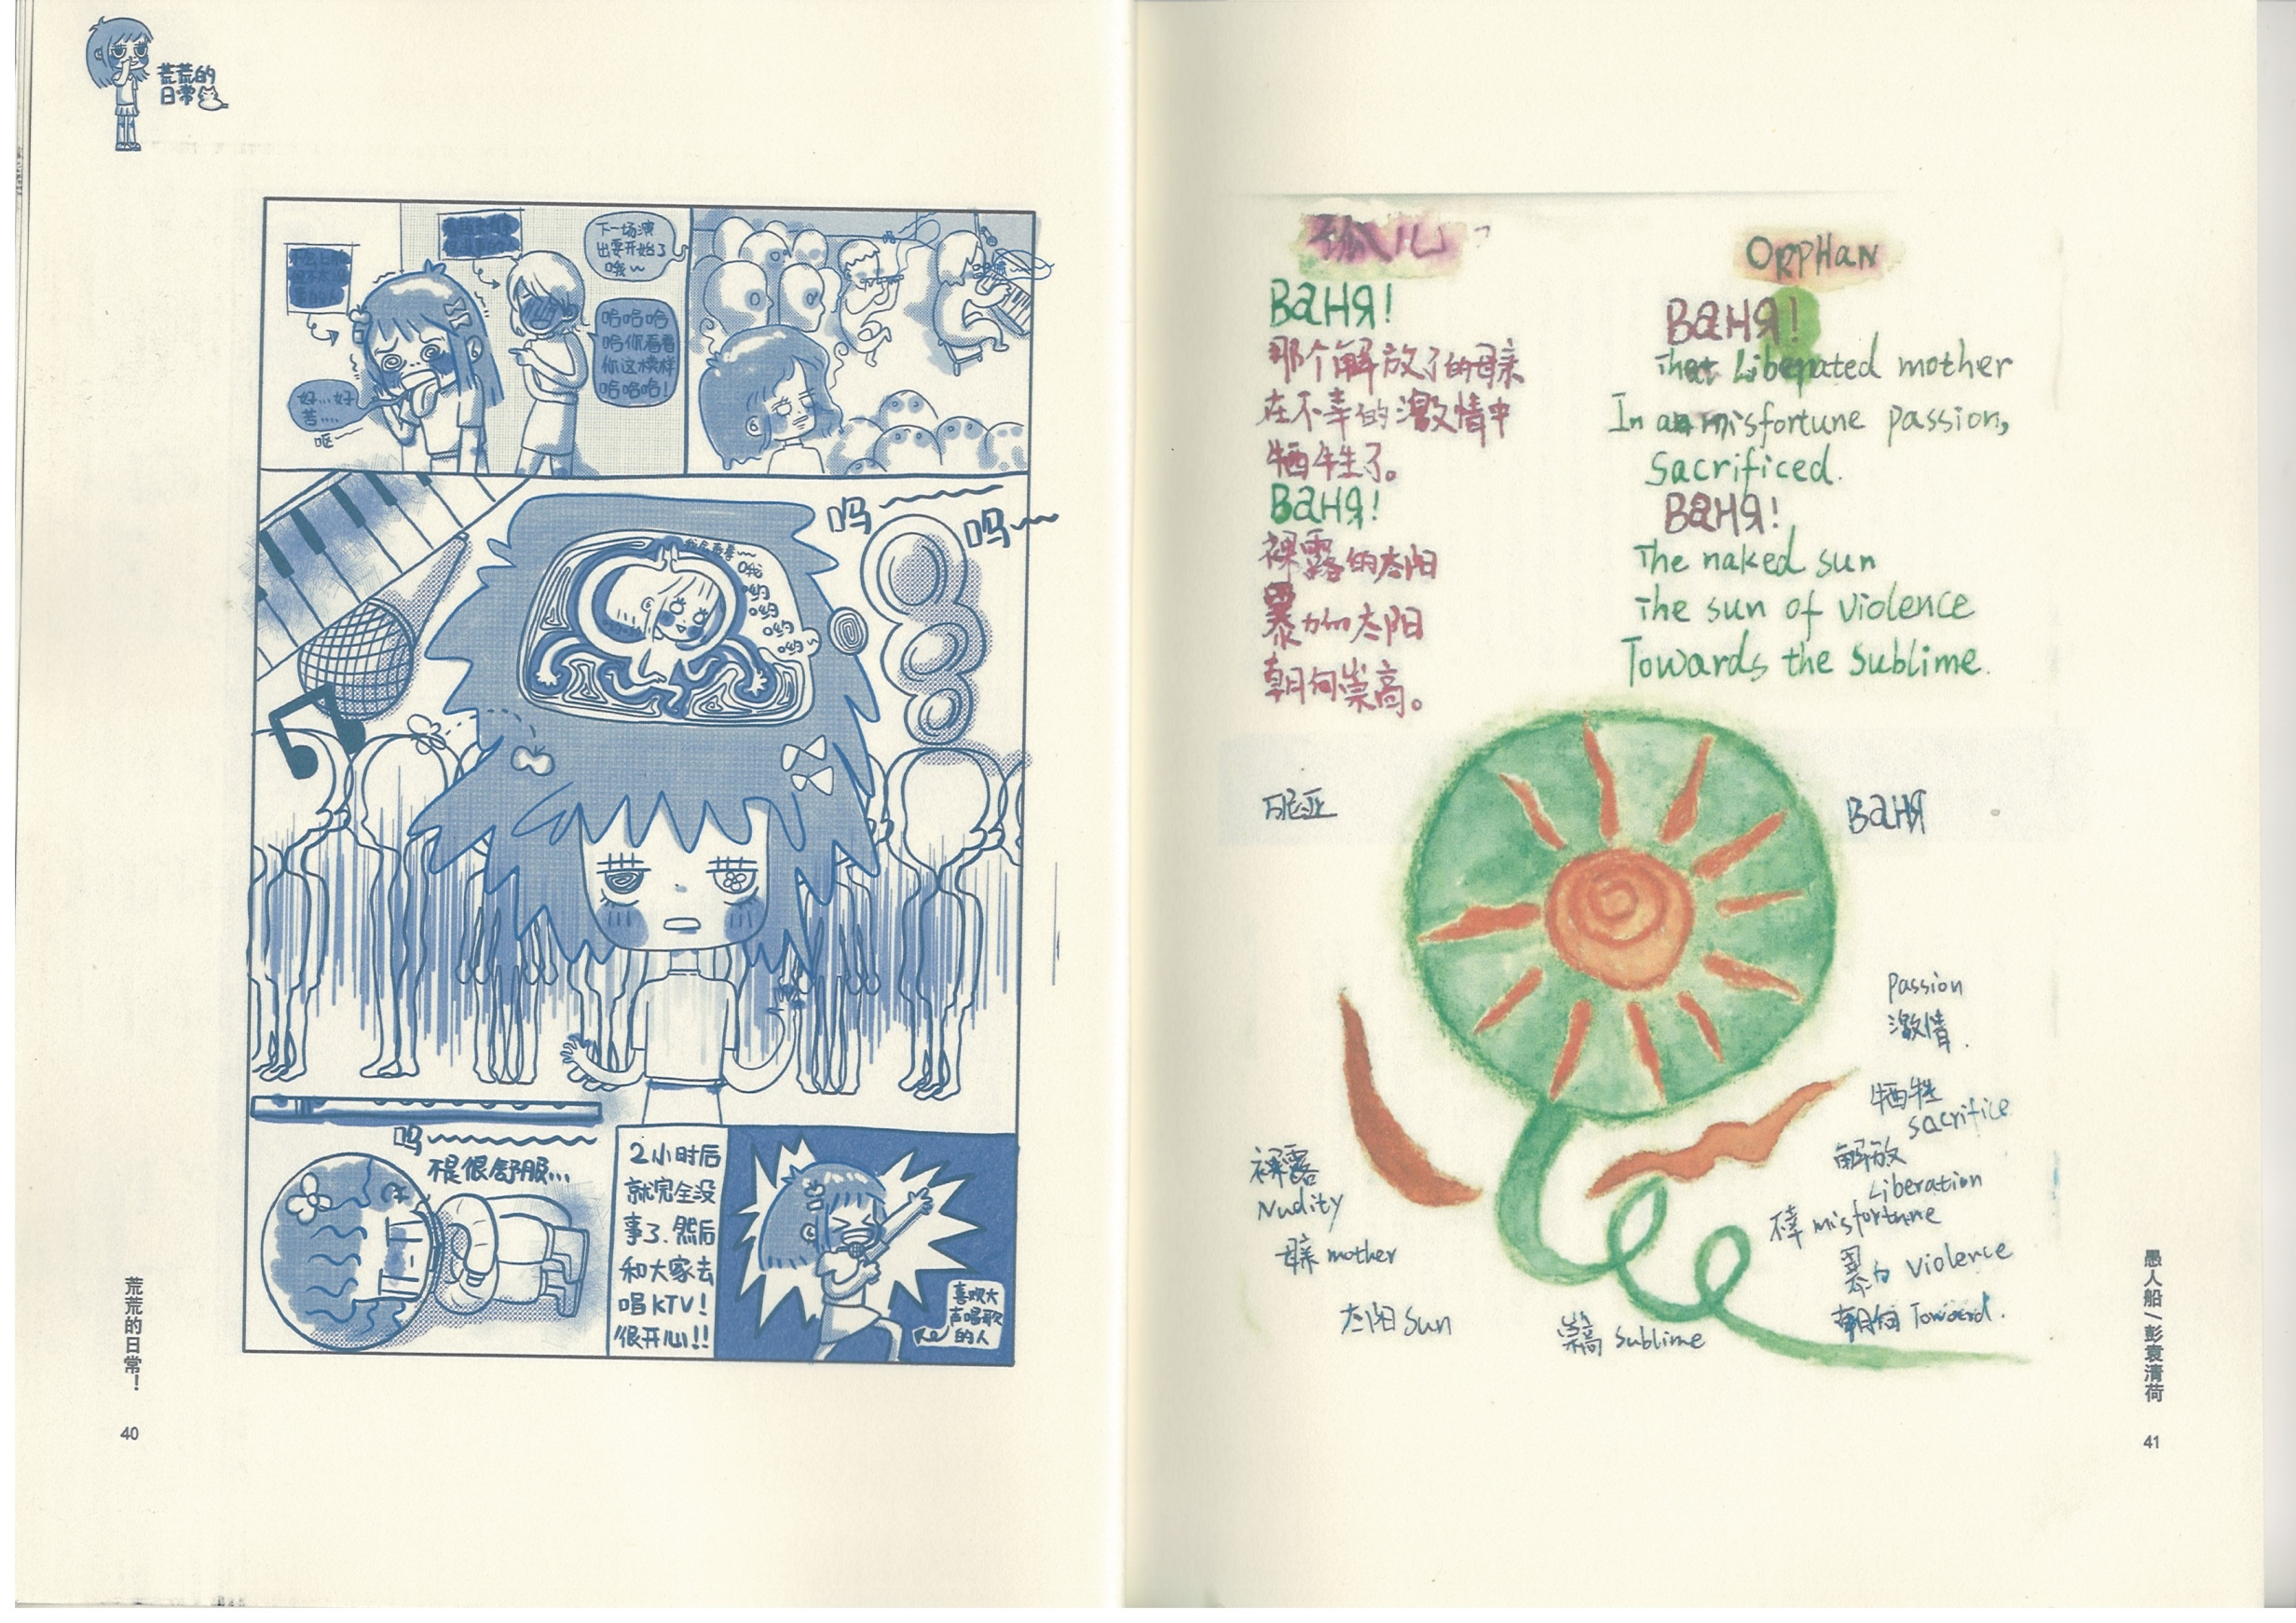 荒荒的
日常
下一场演
出要开始了
哦~
哈哈哈
哈你看看
你这模样
哈哈哈!
好…好
苦….
呕~
呜~
呜~
哦
哟
哟
哟
哟~
呜~
不是很舒服…
2小时后
就完全没
事了.然后
和大家去
唱KTV!
很开心!!
喜欢大
声唱歌
的人
荒荒的日常!
40
孤儿
Ваня!
那个解放了的母亲
在不幸的激情中
牺牲了。
Ваня!
裸露的太阳
暴力的太阳
朝向崇高。
ORPHaN
Ваня!
That Liberated mother
In a misfortune passion,
Sacrificed.
Ваня!
The naked sun
The sun of violence
Towards the Sublime.
万尼亚
Ваня
Passion
激情.
牺牲
sacrifice
解放
Liberation
不幸 misfortune
暴力 violence
朝向 Toword.
裸露
Nudity
母亲 mother
太阳 Sun
崇高 Sublime
愚人船/彭袁清荷
41